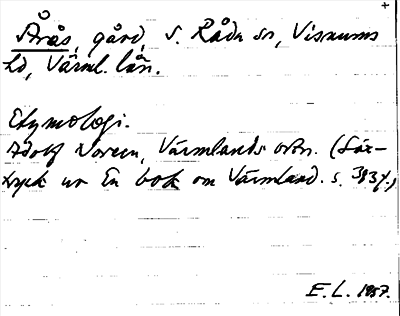 +
Årås, gård, S. Råda sn, Visnums
hd, Värml. län.
Etymologi.
Adolf Noreen, Värmlands ortn. (Sär-
tryck ur En bok om Värmland. s. 393 f.,
E.L. 1957.